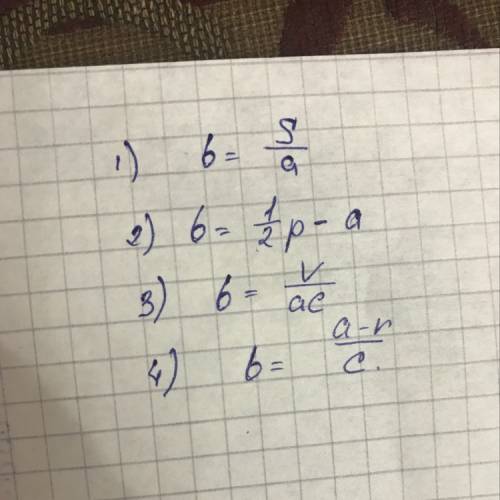 1) b = S/a
2) b = 1/2 p - a
3) b = V/ac
4) b = a-r/c.